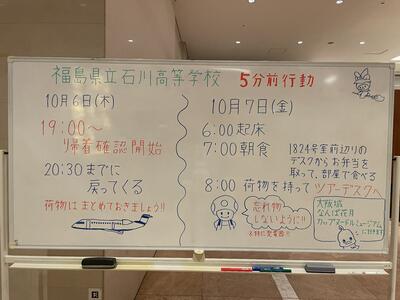 福島県立石川高等学校 5分前行動
10月6日(木)
19:00〜
帰着確認開始
20:30までに
戻ってくる
荷物はまとめておきましょう!!
10月7日(金)
6:00起床
7:00朝食
1824号室前辺りの
デスクからお弁当を
取って、部屋で食べる
8:00 荷物を持ってツアーデスクへ
忘れ物
しないように!!
※特に充電器!!
大阪城
なんば花月
カップヌードルミュージアム
に行きます